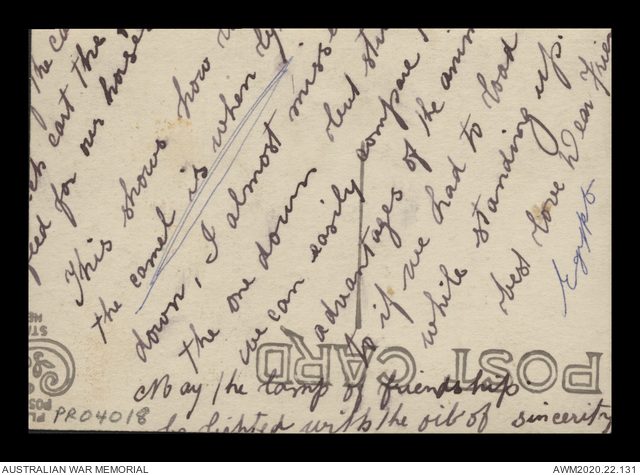 the ca
ch cart the
feed for our horses
This shows how
the camel is when ly
down, I almost misse
the one down but sti
we can easily compare
advantages of the anim
if we had to load
while standing up.
best love Dear Frien
Egypt
POST CARD
May the lamp of friendship
be lighted with the oil of sincerity
PR04018
AUSTRALIAN WAR MEMORIAL
AWM2020.22.131